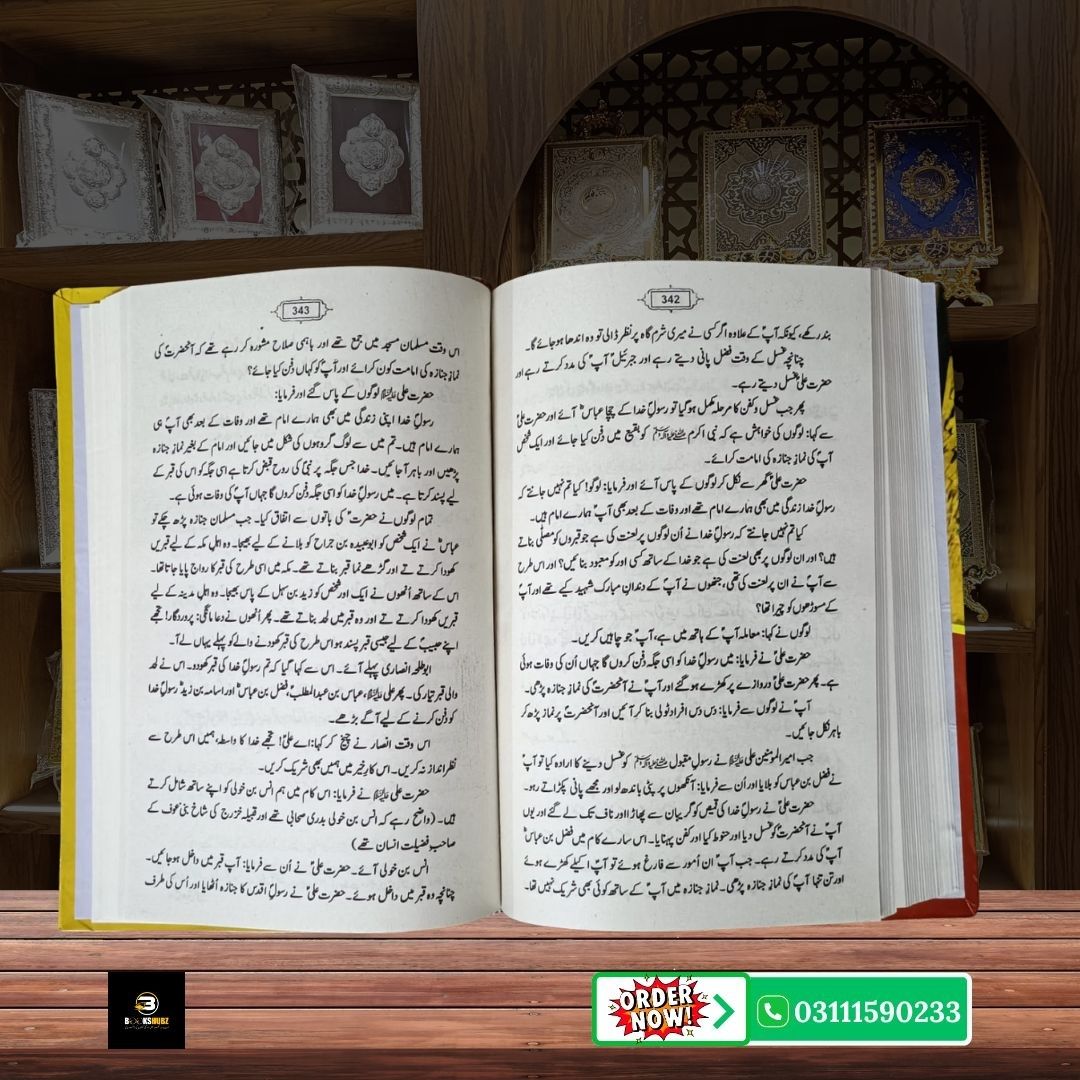 342
بند رکھے، کیونکہ آپؑ کے علاوہ اگر کسی نے میری شرم گاہ پر نظر ڈالی تو وہ اندھا ہو جائے گا۔
چنانچہ غسل کے وقت فضل پانی دیتے رہے اور جبرئیلؑ آپؑ کی مدد کرتے رہے اور
حضرت علیؑ غسل دیتے رہے۔
پھر جب غسل و کفن کا مرحلہ مکمل ہو گیا تو رسولِ خدا کے چچا عباسؓ آئے اور حضرت علیؑ
سے کہا: لوگوں کی خواہش ہے کہ نبی اکرم ﷺ کو بقیع میں دفن کیا جائے اور ایک شخص
آپؐ کی نمازِ جنازہ کی امامت کرائے۔
حضرت علیؑ گھر سے نکل کر لوگوں کے پاس آئے اور فرمایا: لوگو! کیا تم نہیں جانتے کہ
رسولِ خدا زندگی میں بھی ہمارے امام تھے اور وفات کے بعد بھی آپؐ ہمارے امام ہیں۔
کیا تم نہیں جانتے کہ رسولِ خدا نے اُن لوگوں پر لعنت کی ہے جو قبروں کو مصلّٰی بناتے
ہیں؟ اور ان لوگوں پر بھی لعنت کی ہے جو خدا کے ساتھ کسی اور کو معبود بنائیں؟ اور اس طرح
سے آپؐ نے ان پر لعنت کی تھی، جنھوں نے آپؐ کے دندانِ مبارک شہید کیے تھے اور آپؐ
کے مسوڑھوں کو چیرا تھا؟
لوگوں نے کہا: معاملہ آپؑ کے ہاتھ میں ہے، آپؑ جو چاہیں کریں۔
حضرت علیؑ نے فرمایا: میں رسولِ خدا کو اسی جگہ دفن کروں گا جہاں اُن کی وفات ہوئی
ہے۔ پھر حضرت علیؑ دروازے پر کھڑے ہو گئے اور آپؑ نے آنحضرتؐ کی نمازِ جنازہ پڑھی۔
آپؑ نے لوگوں سے فرمایا: دس دس افراد ٹولی بنا کر آئیں اور آنحضرتؐ پر نماز پڑھ کر
باہر نکل جائیں۔
جب امیرالمومنین علی علیہ السلام نے رسولِ مقبول ﷺ کو غسل دینے کا ارادہ کیا تو آپؑ
نے فضل بن عباس کو بلایا اور اُن سے فرمایا: آنکھوں پر پٹی باندھ لو اور مجھے پانی پکڑاتے رہو۔
حضرت علیؑ نے رسولِ خدا کی قمیص کو گریبان سے پھاڑا اور ناف تک لے گئے اور یوں
آپؑ نے آنحضرتؐ کو غسل دیا اور حنوط کیا اور کفن پہنایا۔ اس سارے کام میں فضل بن عباسؓ
آپؑ کی مدد کرتے رہے۔ جب آپؑ ان اُمور سے فارغ ہوئے تو آپؑ اکیلے کھڑے ہوئے
اور تنِ تنہا آپؐ کی نمازِ جنازہ پڑھی۔ نمازِ جنازہ میں آپؑ کے ساتھ کوئی بھی شریک نہیں تھا۔
343
اس وقت مسلمان مسجد میں جمع تھے اور باہمی صلاح مشورہ کر رہے تھے کہ آنحضرتؐ کی
نمازِ جنازہ کی امامت کون کرائے اور آپؐ کو کہاں دفن کیا جائے؟
حضرت علی علیہ السلام لوگوں کے پاس گئے اور فرمایا:
رسولِ خدا اپنی زندگی میں بھی ہمارے امام تھے اور وفات کے بعد بھی آپؐ ہی
ہمارے امام ہیں۔ تم میں سے لوگ گروہوں کی شکل میں جائیں اور امام کے بغیر نمازِ جنازہ
پڑھیں اور باہر آ جائیں۔ خدا جس جگہ پر نبیؐ کی روح قبض کرتا ہے اسی جگہ کو اس کی قبر کے
لیے پسند کرتا ہے۔ میں رسولِ خدا کو اسی جگہ دفن کروں گا جہاں آپؐ کی وفات ہوئی ہے۔
تمام لوگوں نے حضرتؑ کی باتوں سے اتفاق کیا۔ جب مسلمان جنازہ پڑھ چکے تو
عباسؓ نے ایک شخص کو ابوعبیدہ بن جراح کو بلانے کے لیے بھیجا۔ وہ اہلِ مکہ کے لیے قبریں
کھودا کرتے تھے اور گڑھے نما قبر بناتے تھے۔ مکہ میں اسی طرح کی قبر کا رواج پایا جاتا تھا۔
اس کے ساتھ اُنھوں نے ایک اور شخص کو زید بن سہل کے پاس بھیجا۔ وہ اہلِ مدینہ کے لیے
قبریں کھودا کرتے تھے اور وہ قبر میں لحد بناتے تھے۔ پھر اُنھوں نے دعا مانگی: پروردگار! تجھے
اپنے حبیبؐ کے لیے جیسی قبر پسند ہو اس طرح کی قبر کھودنے والے کو پہلے یہاں لے آ۔
ابوطلحہ انصاری پہلے آئے۔ اس سے کہا گیا کہ تم رسولِ خدا کی قبر کھودو۔ اس نے لحد
والی قبر تیار کی۔ پھر علی علیہ السلام، عباس بن عبدالمطلبؓ، فضل بن عباسؓ اور اسامہ بن زیدؓ رسولِ خدا
کو دفن کرنے کے لیے آگے بڑھے۔
اس وقت انصار نے چیخ کر کہا: اے علیؑ! تجھے خدا کا واسطہ، ہمیں اس طرح سے
نظر انداز نہ کریں۔ اس کارِ خیر میں ہمیں بھی شریک کریں۔
حضرت علی علیہ السلام نے فرمایا: اس کام میں ہم انس بن خولی کو اپنے ساتھ شامل کرتے
ہیں۔ (واضح رہے کہ انس بن خولی بدری صحابی تھے اور قبیلہ خزرج کی شاخ بنی عوف کے
صاحبِ فضیلت انسان تھے)
انس بن خولی آئے۔ حضرت علیؑ نے اُن سے فرمایا: آپ قبر میں داخل ہو جائیں۔
چنانچہ وہ قبر میں داخل ہوئے۔ حضرت علیؑ نے رسولِ اقدسؐ کا جنازہ اُٹھایا اور اُس کی طرف
BOOKSHUBZ
ORDER NOW!
03111590233